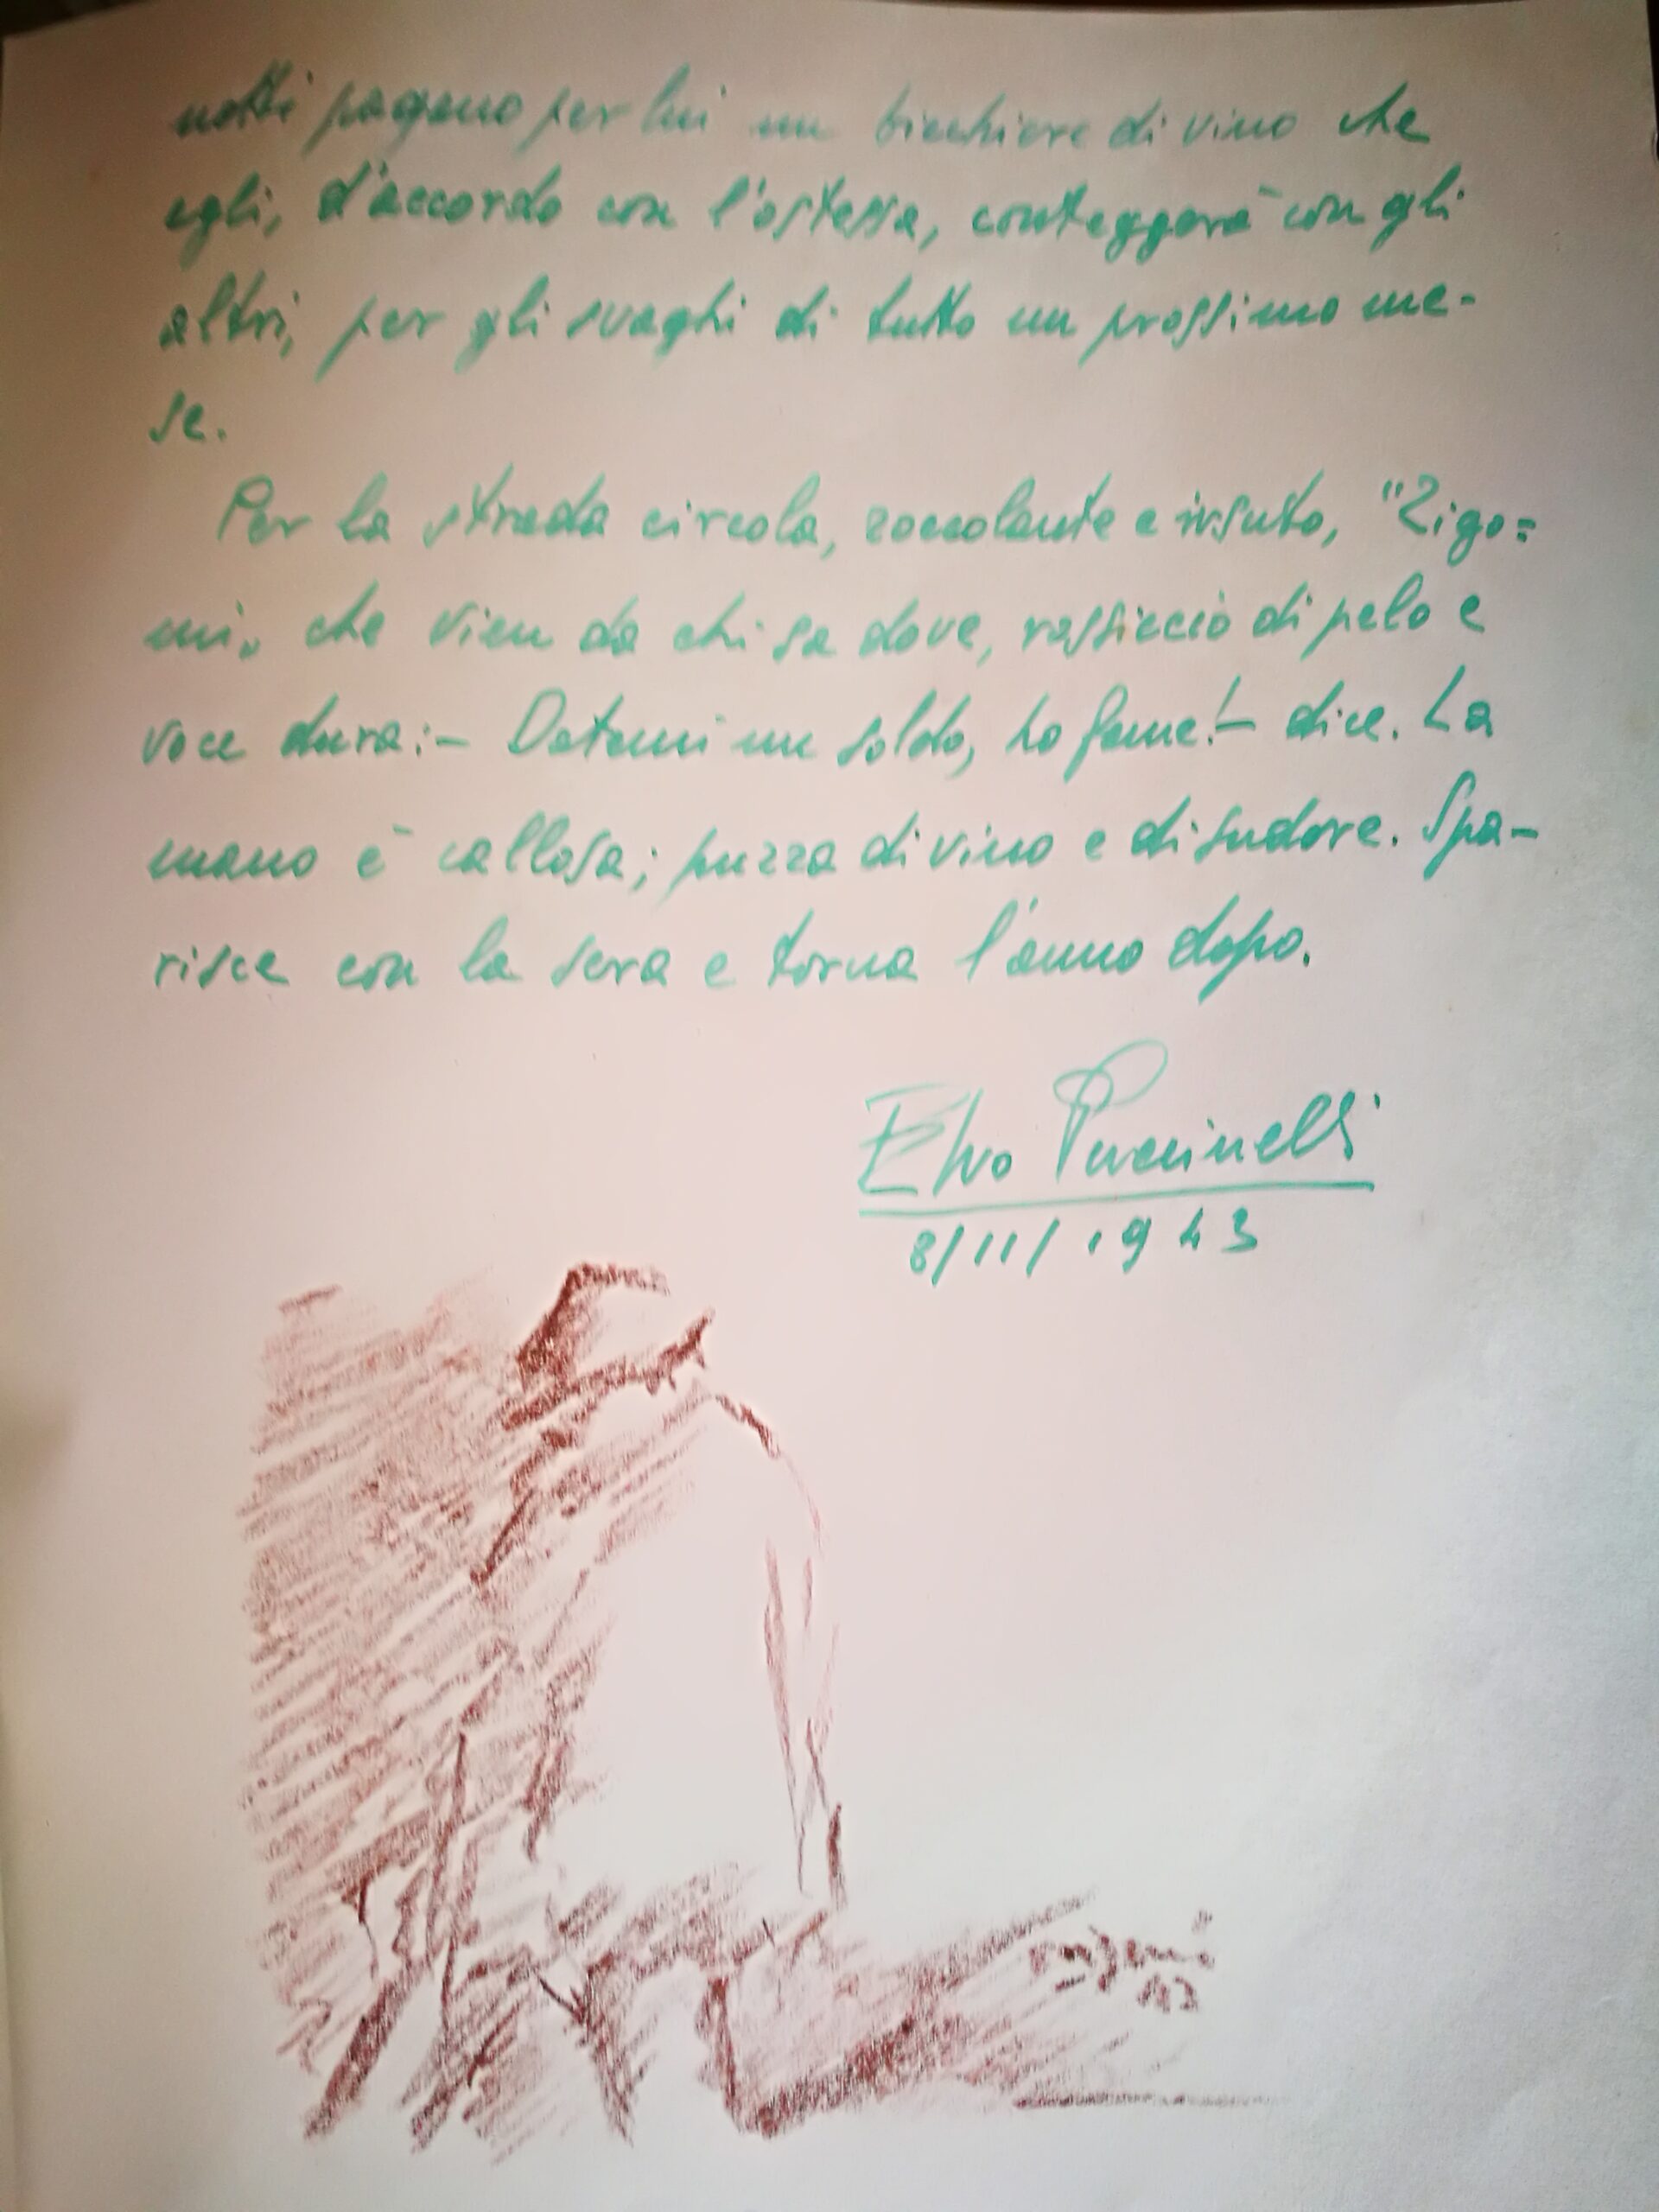 notti pagano per lui un bicchiere di vino che
egli, d'accordo con l'ostessa, conteggerà con gli
altri, per gli svaghi di tutto un prossimo me-
se.
Per la strada circola, zoccolante e irsuto, "Zigo=
mi„ che vien da chi sa dove, rossiccio di pelo e
voce dura:- Datemi un soldo, ho fame!- dice. La
mano è callosa; puzza di vino e di sudore. Spa-
risce con la sera e torna l'anno dopo.
Elvo Puccinelli
8/11/1943